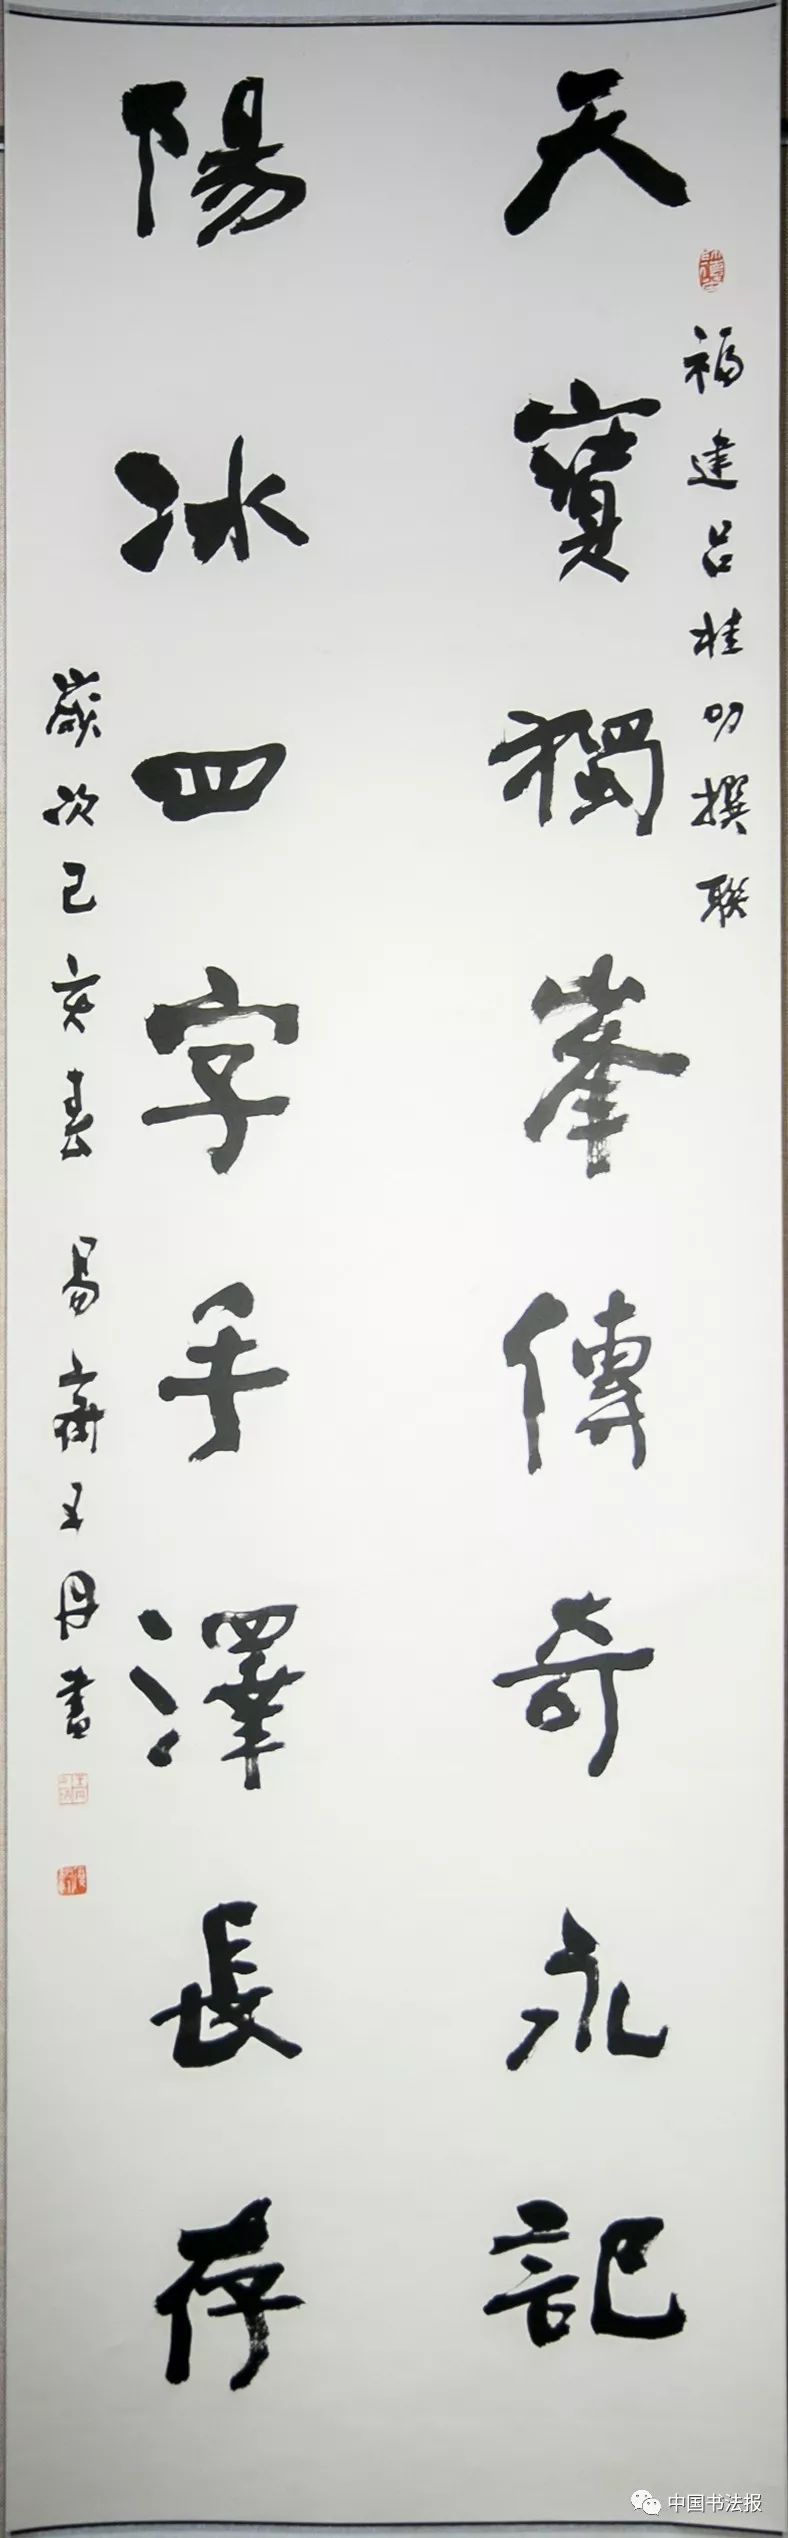 天寶獨峯傳奇永記
福建吕桂明撰联
陽冰四字手澤長存
嵗次己亥春 易齋王丹書
中国书法报